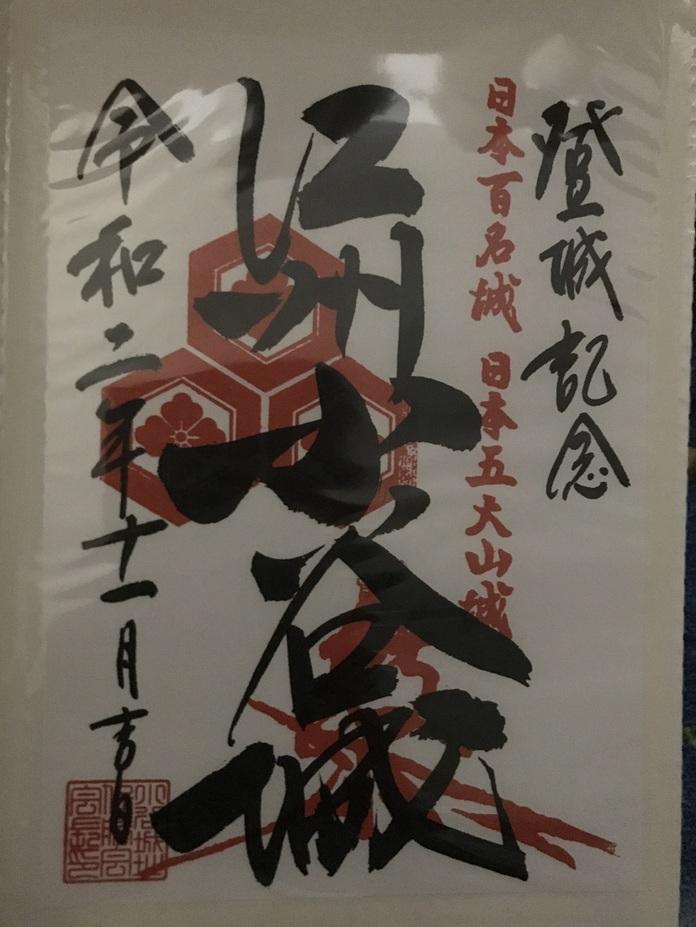 登城記念
日本百名城 日本五大山城
江州小谷城
令和二年十一月吉日